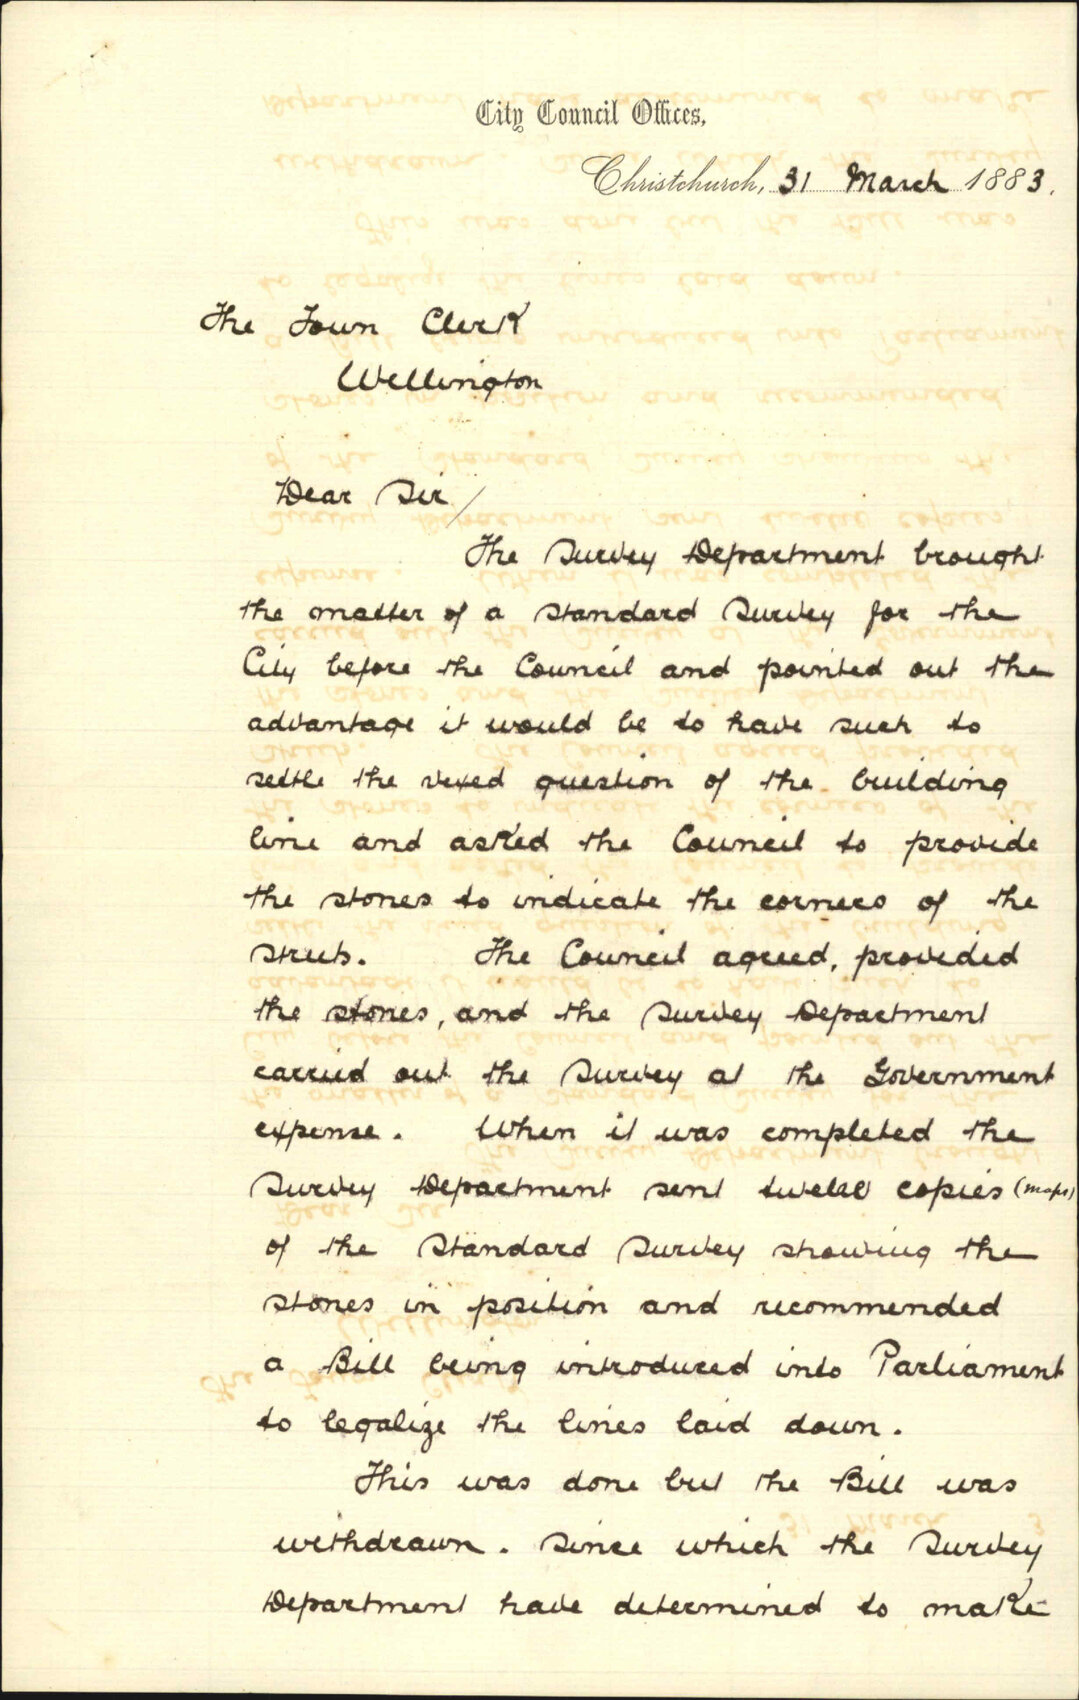 City Council Offices,
Christchurch, 31 March 1883.
The Town Clerk
Wellington
Dear Sir/
The Survey Department brought
the matter of a Standard Survey for the
City before the Council and pointed out the
advantage it would be to have such to
settle the vexed question of the building
line and asked the Council to provide
the stones to indicate the corners of the
streets. The Council agreed, provided
the stones, and the Survey Department
carried out the Survey at the Government
expense. When it was completed the
Survey Department sent twelve copies (maps)
of the Standard Survey showing the
stones in position and recommended
a Bill being introduced into Parliament
to legalize the lines laid down.
This was done but the Bill was
withdrawn. Since which the Survey
Department have determined to make